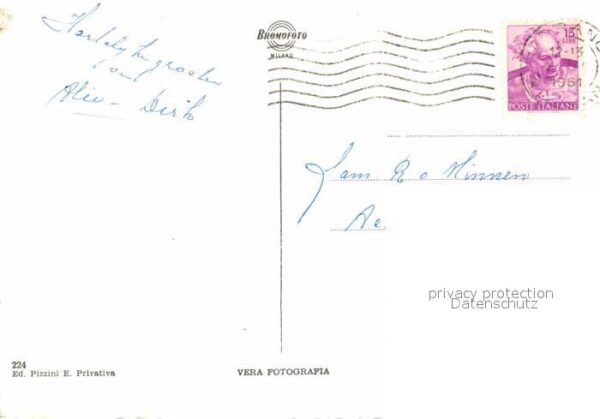 Hartelijke groeten
van
Alie - Dirk
BROMOFOTO
MILANO
15
LIRE
12-13
1961
POSTE ITALIANE
Fam R v Minnen
Ae
privacy protection
Datenschutz
224
Ed. Pizzini E. Privativa
VERA FOTOGRAFIA